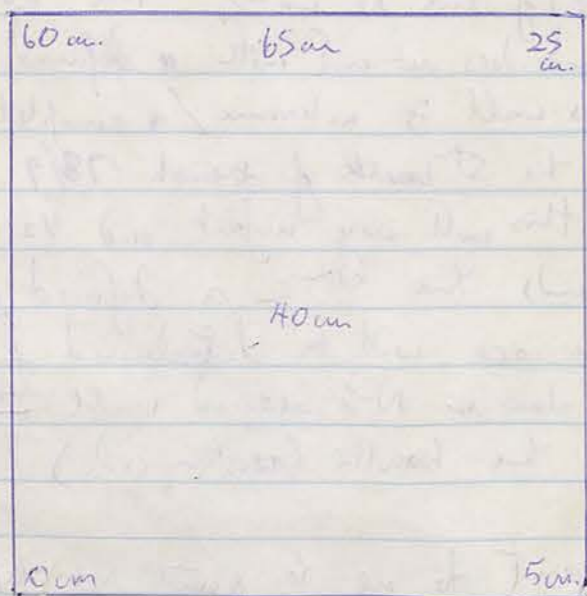 60 cm. 65 cm 25 cm.
40 cm
0 cm 5 cm.